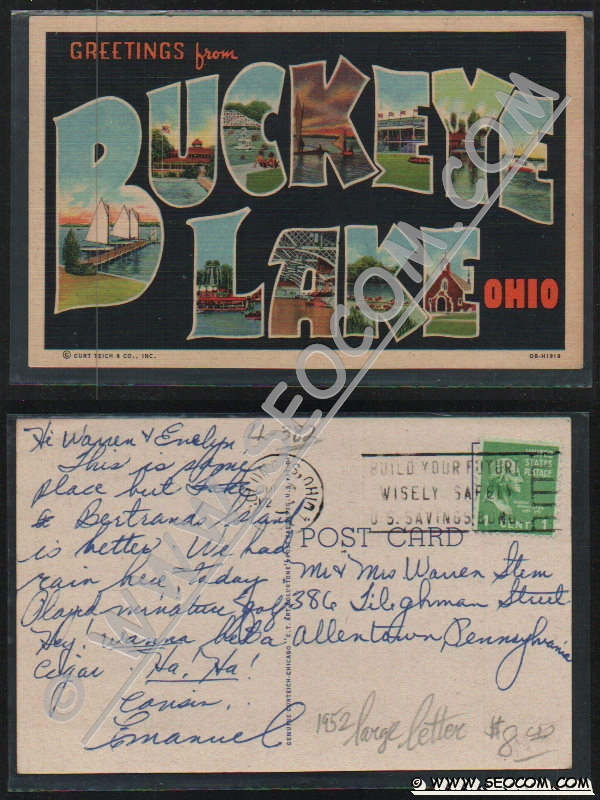 GREETINGS from
BUCKEYE
LAKE OHIO
© CURT TEICH & CO., INC.
OB-H1919
Hi Warren & Evelyn,
4-302
This is some
place but
& Bertrands Island
is better. We had
rain here today
Played minature golf
Hey! wanna bet a
Cigar. Ha! Ha!
Cousin,
Emanuel
OHIO
BUILD YOUR FUTURE
WISELY SAFELY
U.S. SAVINGS BONDS
UNITED STATES POSTAGE
CENT
POST CARD
Mr & Mrs Warren Stem
386 Tileghman Street
Allentown, Pennsylvania
GENUINE CURTEICH-CHICAGO
1952 large letter $8.00
© WWW.SEOCOM.COM
© WWW.SEOCOM.COM
© WWW.SEOCOM.COM